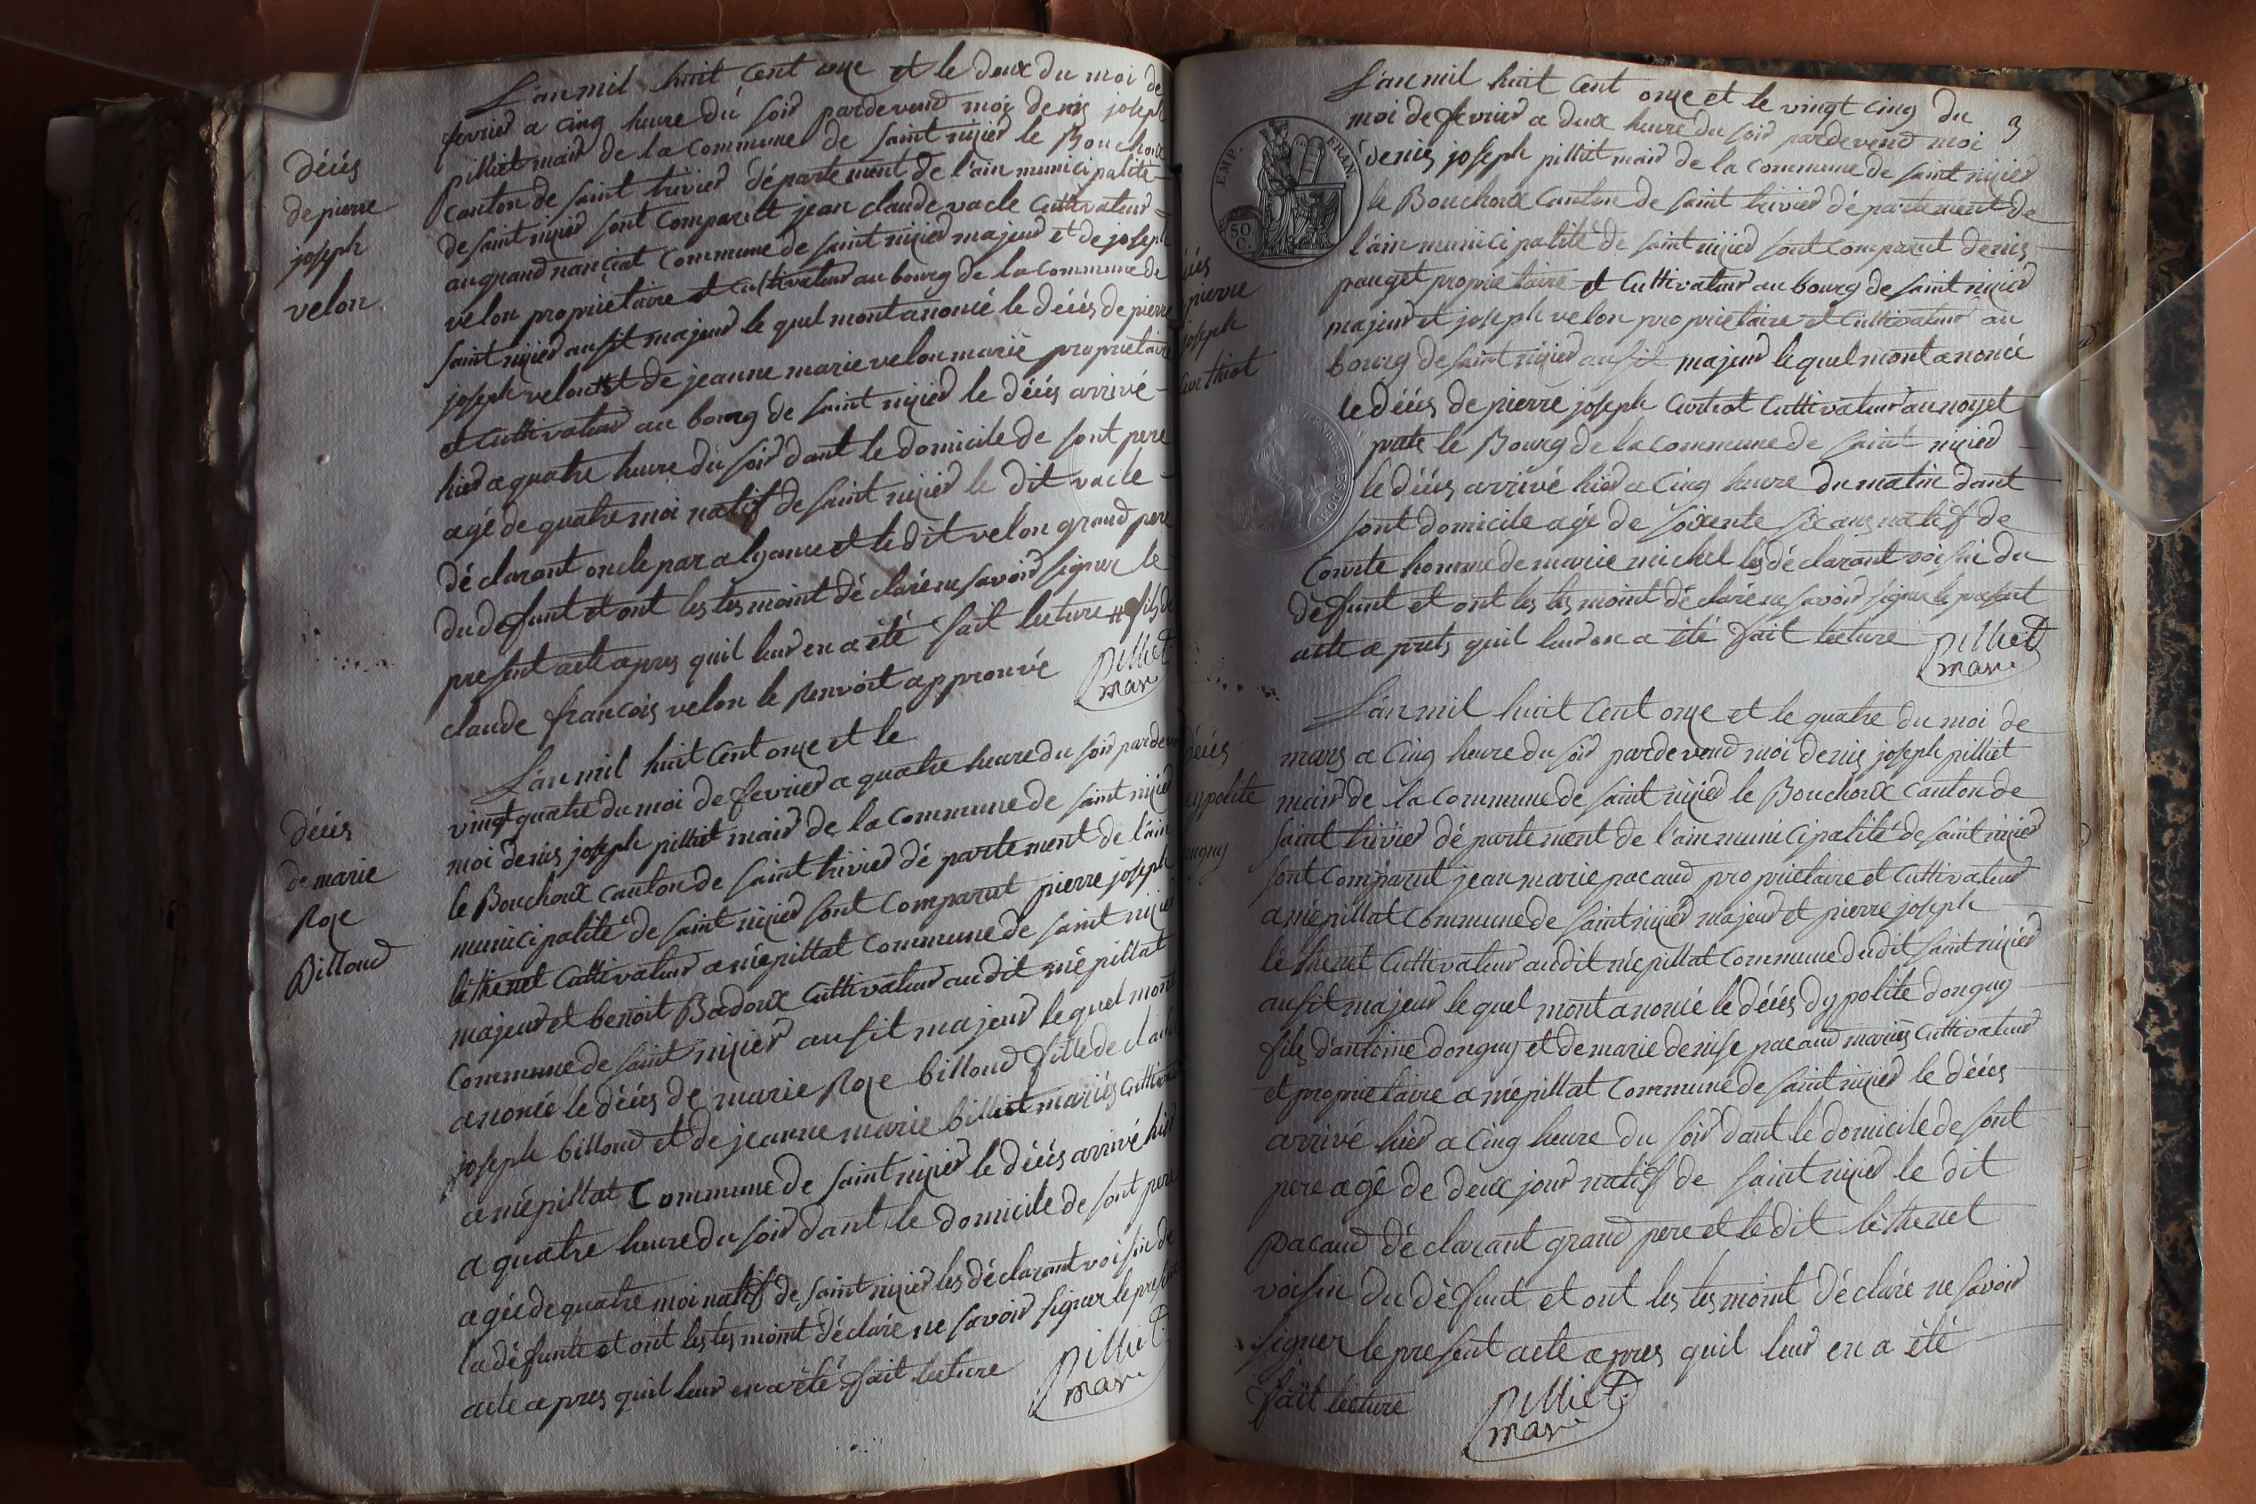 décés
de pierre
joseph
velon
L'an mil huit cent onze et le deux du moi de
fevrier a cinq heure du soir pardevend moi denis joseph
pilliet mair de la commune de saint nizier le Bouchoux
canton de saint trivier département de l'ain municipalité
de saint nizier sont comparut jean claude vacle cultivateur
au grand nanciat commune de saint nizier majeur et de joseph
velon propriétaire et cultivateur au bourg de la commune de
saint nizier ausit majeur le quel mont anoncé le décés de pierre
joseph velon # et de jeanne marie velon marié propriétaire
et cultivateur au bourg de saint nizier le décés arrivé
hier a quatre heure du soir dant le domicile de sont pere
agé de quatre moi natif de saint nizier le dit vacle
déclarant oncle par alyance et le dit velon grand pere
du defunt et ont les tesmoint déclaré ne savoir signer le
present acte apres quil leur en a été fait lecture # fils de
claude francois velon le renvoit approuvé
Pilliet
mair
décés
de marie
Roze
Billoud
L'an mil huit cent onze et le
vingt quatre du moi de fevrier a quatre heure du soir pardevend
moi denis joseph pilliet mair de la commune de saint nizier
le Bouchoux canton de saint trivier département de l'ain
municipalité de saint nizier sont comparut pierre joseph
léthenet cultivateur a mépillat commune de saint nizier
majeur et benoit Badoux cultivateur audit mépillat
commune de saint nizier ausit majeur le quel mont
anoncé le décés de marie Roze billoud fille de claude
joseph billoud et de jeanne marie billiet mariés cultivateur
a mépillat commune de saint nizier le décés arrivé hier
a quatre heure du soir dant le domicile de sont pere
agée de quatre moi natif de saint nizier les déclarant voisin de
la défunte et ont les tesmoint déclaré ne savoir signer le present
acte apres quil leur en a été fait lecture
Pilliet
mair
3
EMP. FRAN.
50 C.
décés
pierre
joseph
Curthiot
L'an mil huit cent onze et le vingt cinq du
moi de fevrier a deux heure du soir pardevend moi
denis joseph pilliet mair de la commune de saint nizier
le Bouchoux canton de saint trivier département de
l'ain municipalité de saint nizier sont comparut denis
pauget propriétaire et cultivateur au bourg de saint nizier
majeur et joseph velon propriétaire et cultivateur au
bourg de saint nizier ausit majeur le quel mont anoncé
le décés de pierre joseph Curtiot cultivateur au noyet
prete le Bourg de la commune de saint nizier
le décés arrivé hier a cinq heure du matin dant
sont domicile agé de soixente six ans natif de
Courte homme de marie michel les déclarant voisin du
défunt et ont les tesmoint déclaré ne savoir signer le present
acte a prets quil leur en a été fait lecture
Pilliet
mair
décés
hyppolite
donguy
L'an mil huit cent onze et le quatre du moi de
mars a cinq heure du soir pardevend moi denis joseph pilliet
mair de la commune de saint nizier le Bouchoux canton de
saint trivier département de l'ain municipalité de saint nizier
sont comparut jean marie pacaud propriétaire et cultivateur
a mépillat commune de saint nizier majeur et pierre joseph
léthenet cultivateur audit mépillat commune dudit saint nizier
ausit majeur le quel mont anoncé le décés dypolite donguy
fils d'antoine donguy et de marie denise pacaud mariés cultivateur
et propriétaire a mépillat commune de saint nizier le décés
arrivé hier a cinq heure du soir dant le domicile de sont
pere agé de deux jour natif de saint nizier le dit
pacaud déclarant grand pere et le dit léthenet
voisin du défunt et ont les tesmoint déclaré ne savoir
signer le present acte apres quil leur en a été
fait lecture
Pilliet
mair